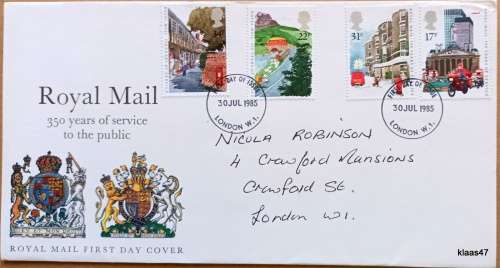 22P
31P
17P
FIRST DAY OF ISSUE
30 JUL 1985
LONDON W.1.
FIRST DAY OF ISSUE
30 JUL 1985
LONDON W.1.
Royal Mail
350 years of service
to the public
NICOLA ROBINSON
4 Crawford Mansions
Crawford St.
London W1.
DIEU ET MON DROIT
ROYAL MAIL FIRST DAY COVER
klaas47